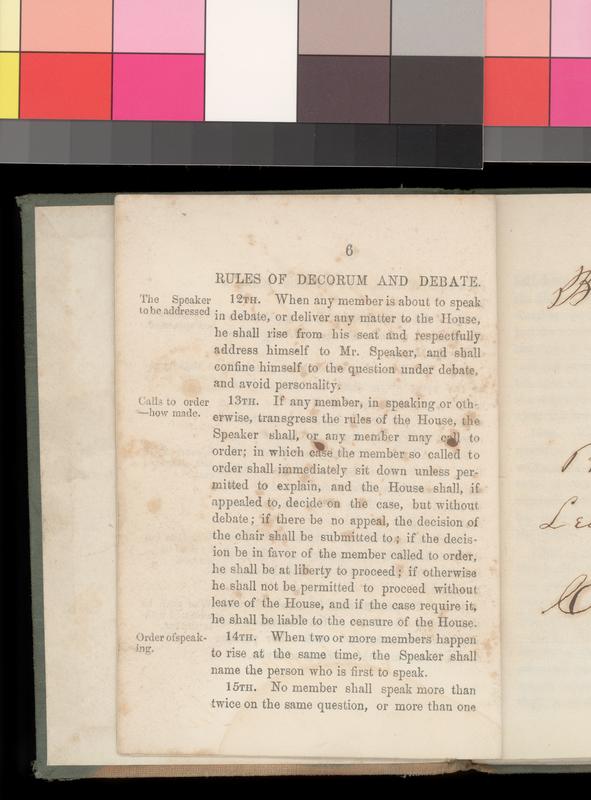 6
RULES OF DECORUM AND DEBATE.
The Speaker
to be addressed
12TH. When any member is about to speak
in debate, or deliver any matter to the House,
he shall rise from his seat and respectfully
address himself to Mr. Speaker, and shall
confine himself to the question under debate,
and avoid personality.
Calls to order
—how made.
13TH. If any member, in speaking or oth-
erwise, transgress the rules of the House, the
Speaker shall, or any member may call to
order; in which case the member so called to
order shall immediately sit down unless per-
mitted to explain, and the House shall, if
appealed to, decide on the case, but without
debate; if there be no appeal, the decision of
the chair shall be submitted to; if the decis-
ion be in favor of the member called to order,
he shall be at liberty to proceed; if otherwise
he shall not be permitted to proceed without
leave of the House, and if the case require it,
he shall be liable to the censure of the House.
Order of speak-
ing.
14TH. When two or more members happen
to rise at the same time, the Speaker shall
name the person who is first to speak.
15TH. No member shall speak more than
twice on the same question, or more than one